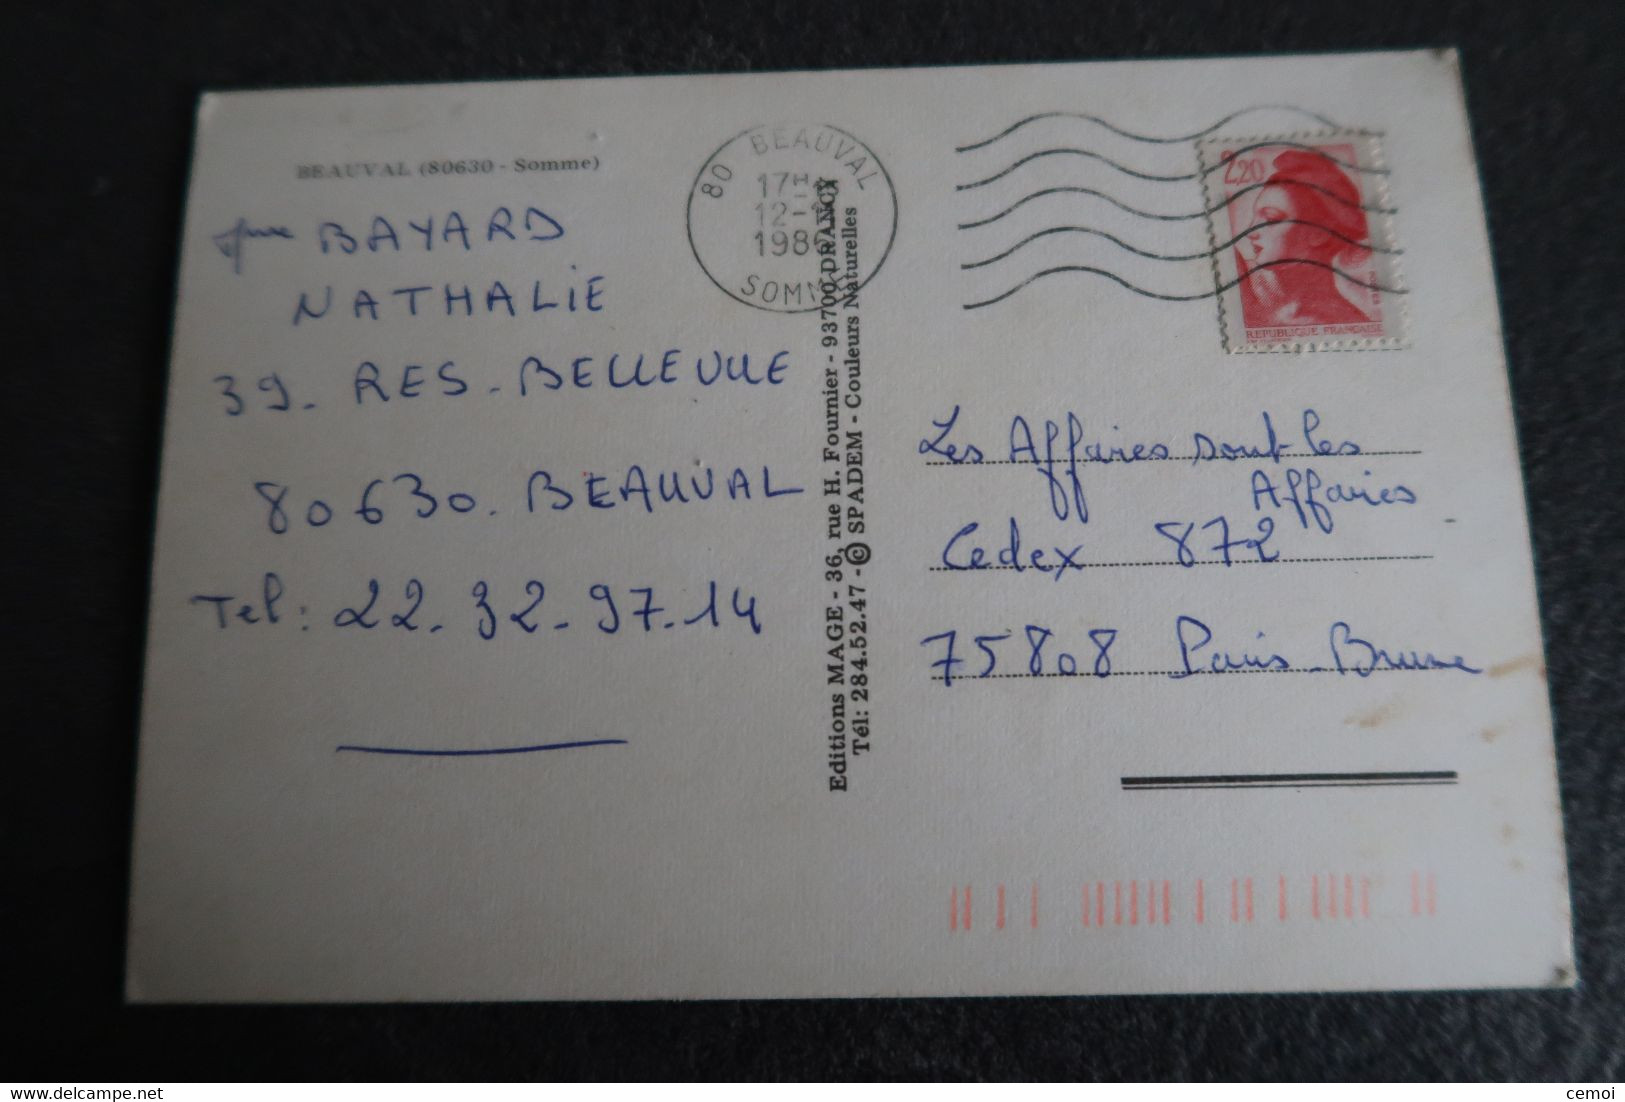 BEAUVAL (80630 - Somme)
BAYARD
NATHALIE
39. RES. BELLEVUE
80630. BEAUVAL
Tel: 22.32.97.14
80 BEAUVAL
17H
12-
198
SOMME
Editions MAGE - 36, rue H. Fournier - 93700 DRANCY
Tél: 284.52.47 - © SPADEM - Couleurs Naturelles
2,20
REPUBLIQUE FRANCAISE
Les Affaires sont les
Affaires
Cedex 872
75808 Paris-Brune
cemoi